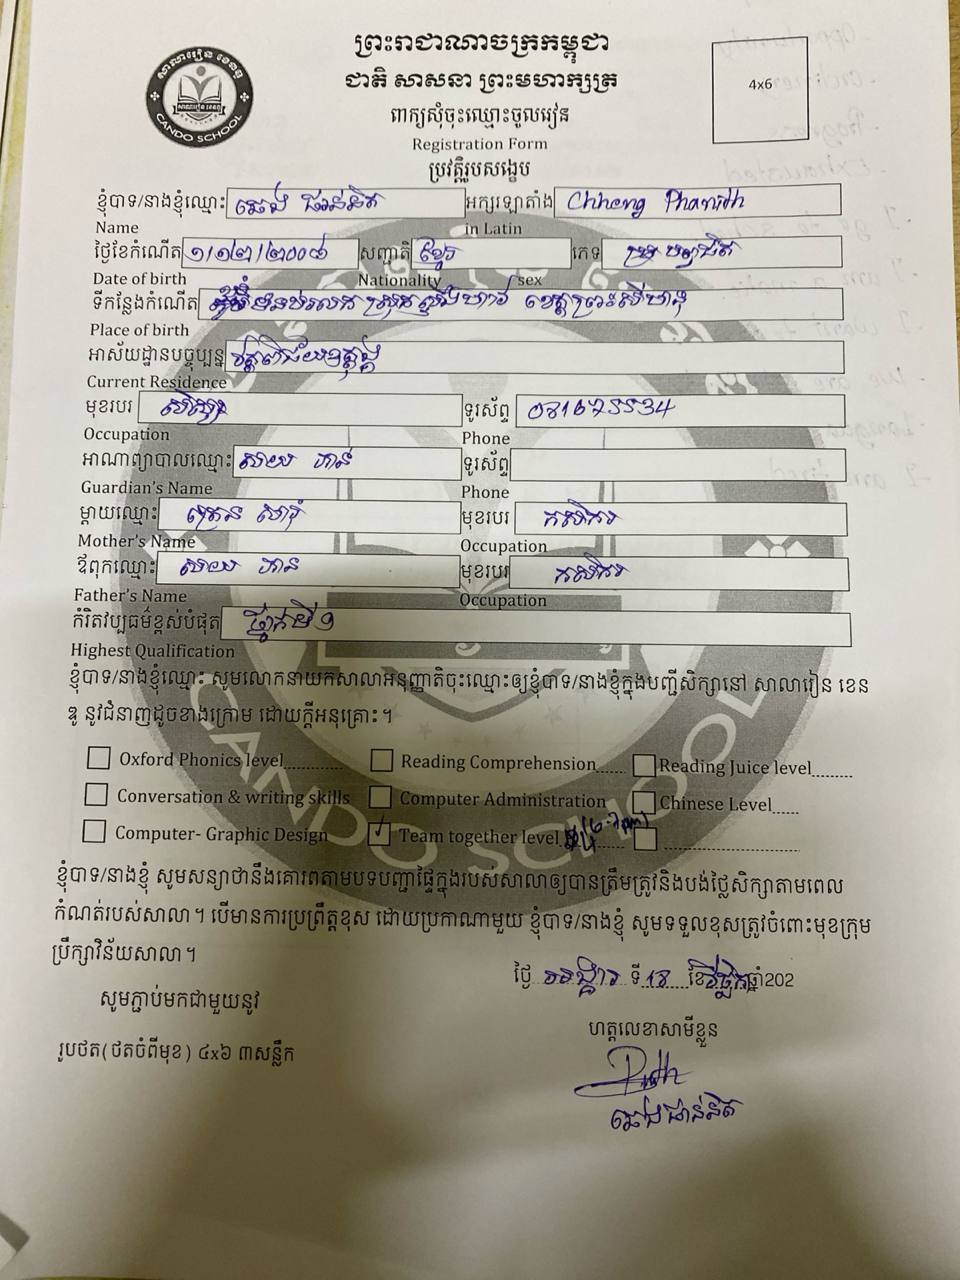 ព្រះរាជាណាចក្រកម្ពុជា
ជាតិ សាសនា ព្រះមហាក្សត្រ
4x6
សាលារៀន ខេនឌូ
CANDO SCHOOL
ពាក្យសុំចុះឈ្មោះចូលរៀន
Registration Form
ប្រវត្តិរូបសង្ខេប
ខ្ញុំបាទ/នាងខ្ញុំឈ្មោះ ឆេង ផាន់និត អក្សរឡាតាំង Chheng Phanith
Name in Latin
ថ្ងៃខែកំណើត ១/១២/២០០៨ សញ្ជាតិ ខ្មែរ ភេទ
Date of birth Nationality sex
ទីកន្លែងកំណើត ខេត្តព្រះសីហនុ
Place of birth
អាស័យដ្ឋានបច្ចុប្បន្ន
Current Residence
មុខរបរ សិស្ស ទូរស័ព្ទ
Occupation Phone
អាណាព្យាបាលឈ្មោះ ទូរស័ព្ទ
Guardian's Name Phone
ម្តាយឈ្មោះ មុខរបរ កសិករ
Mother's Name Occupation
ឪពុកឈ្មោះ មុខរបរ កសិករ
Father's Name Occupation
កំរិតវប្បធម៌ខ្ពស់បំផុត ថ្នាក់ទី
Highest Qualification
ខ្ញុំបាទ/នាងខ្ញុំឈ្មោះ សូមលោកនាយកសាលាអនុញ្ញាតិចុះឈ្មោះឲ្យខ្ញុំបាទ/នាងខ្ញុំក្នុងបញ្ជីសិក្សានៅ សាលារៀន ខេន
ឌូ នូវជំនាញដូចខាងក្រោម ដោយក្តីអនុគ្រោះ។
Oxford Phonics level............ Reading Comprehension...... Reading Juice level........
Conversation & writing skills Computer Administration Chinese Level.....
Computer- Graphic Design ✓ Team together level
ខ្ញុំបាទ/នាងខ្ញុំ សូមសន្យាថានឹងគោរពតាមបទបញ្ជាផ្ទៃក្នុងរបស់សាលាឲ្យបានត្រឹមត្រូវនិងបង់ថ្លៃសិក្សាតាមពេល
កំណត់របស់សាលា។ បើមានការប្រព្រឹត្តខុស ដោយប្រកាណាមួយ ខ្ញុំបាទ/នាងខ្ញុំ សូមទទួលខុសត្រូវចំពោះមុខក្រុម
ប្រឹក្សាវិន័យសាលា។
ថ្ងៃ អង្គារ ទី 18 ខែ វិច្ឆិកា ឆ្នាំ202
សូមភ្ជាប់មកជាមួយនូវ
ហត្ថលេខាសាមីខ្លួន
រូបថត(ថតចំពីមុខ) ៤x៦ ៣សន្លឹក
ឆេង ផាន់និត